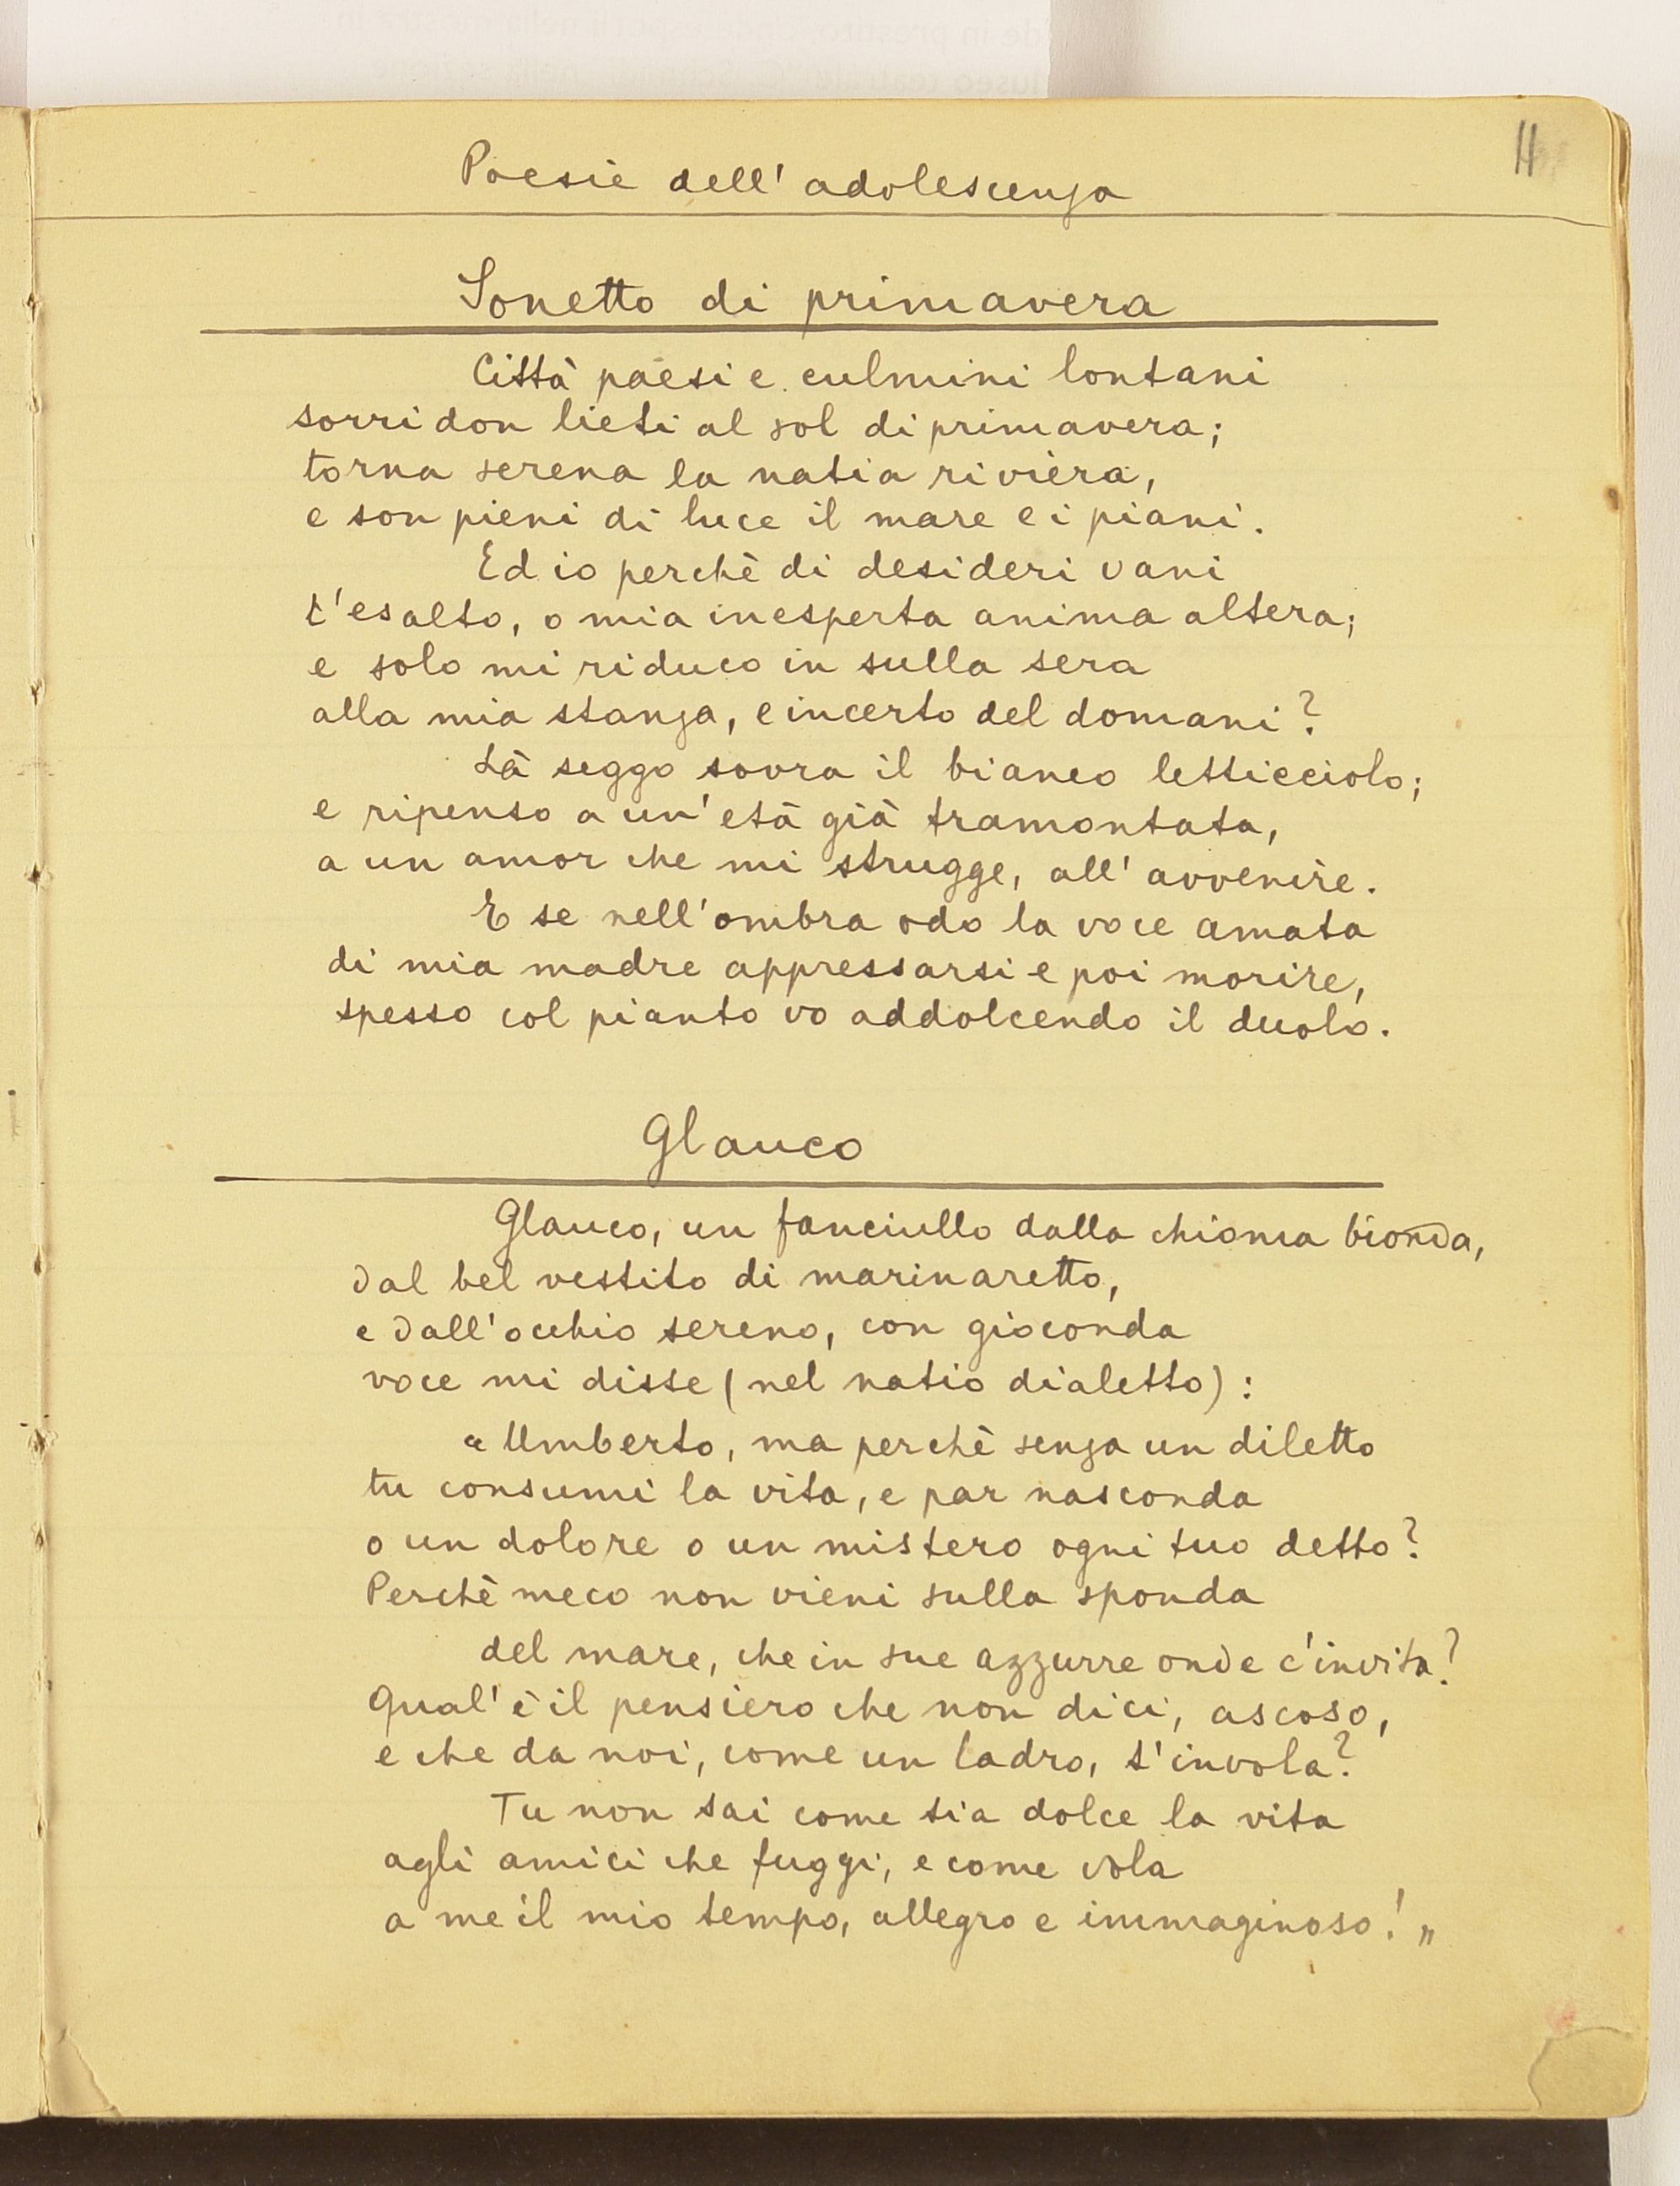 11
Poesie dell'adolescenza
Sonetto di primavera
Città paesi e culmini lontani
sorridon lieti al sol di primavera;
torna serena la natia riviera,
e son pieni di luce il mare e i piani.
Ed io perchè di desideri vani
t'esalto, o mia inesperta anima altera;
e solo mi riduco in sulla sera
alla mia stanza, e incerto del domani?
Là seggo sovra il bianco letticciolo;
e ripenso a un'età già tramontata,
a un amor che mi strugge, all'avvenire.
E se nell'ombra odo la voce amata
di mia madre appressarsi e poi morire,
spesso col pianto vo addolcendo il duolo.
Glauco
Glauco, un fanciullo dalla chioma bionda,
dal bel vestito di marinaretto,
e dall'occhio sereno, con gioconda
voce mi disse (nel natio dialetto):
« Umberto, ma perchè senza un diletto
tu consumi la vita, e par nasconda
o un dolore o un mistero ogni tuo detto?
Perchè meco non vieni sulla sponda
del mare, che in sue azzurre onde c'invita?
Qual'è il pensiero che non dici, ascoso,
e che da noi, come un ladro, t'invola?
Tu non sai come sia dolce la vita
agli amici che fuggi, e come vola
a me il mio tempo, allegro e immaginoso! „